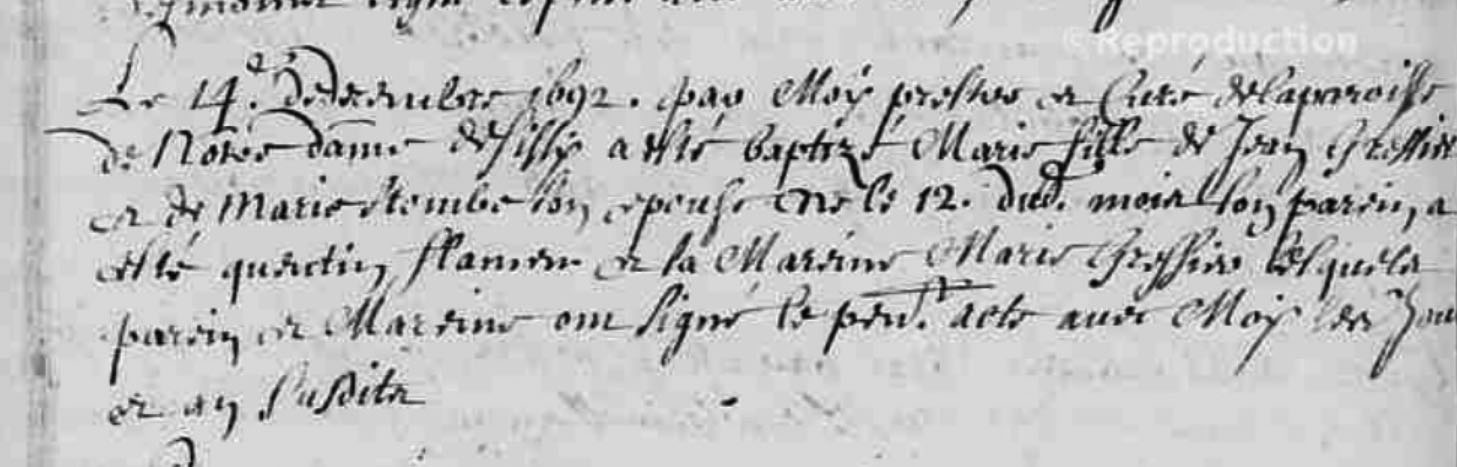 © Reproduction
Le 14.e de decembre 1692. par Moÿ prestre et Curé de la paroisse
de Notre dame de sissÿ a esté baptizé Marie fille de Jean Greffier
et de Marie son epouse née le 12. dud. mois son parein a
esté quentin flamen et la Mareine Marie Greffier lesquels
parein et Mareine ont signé le pnt. acte avec Moÿ les Jour
et an susdits